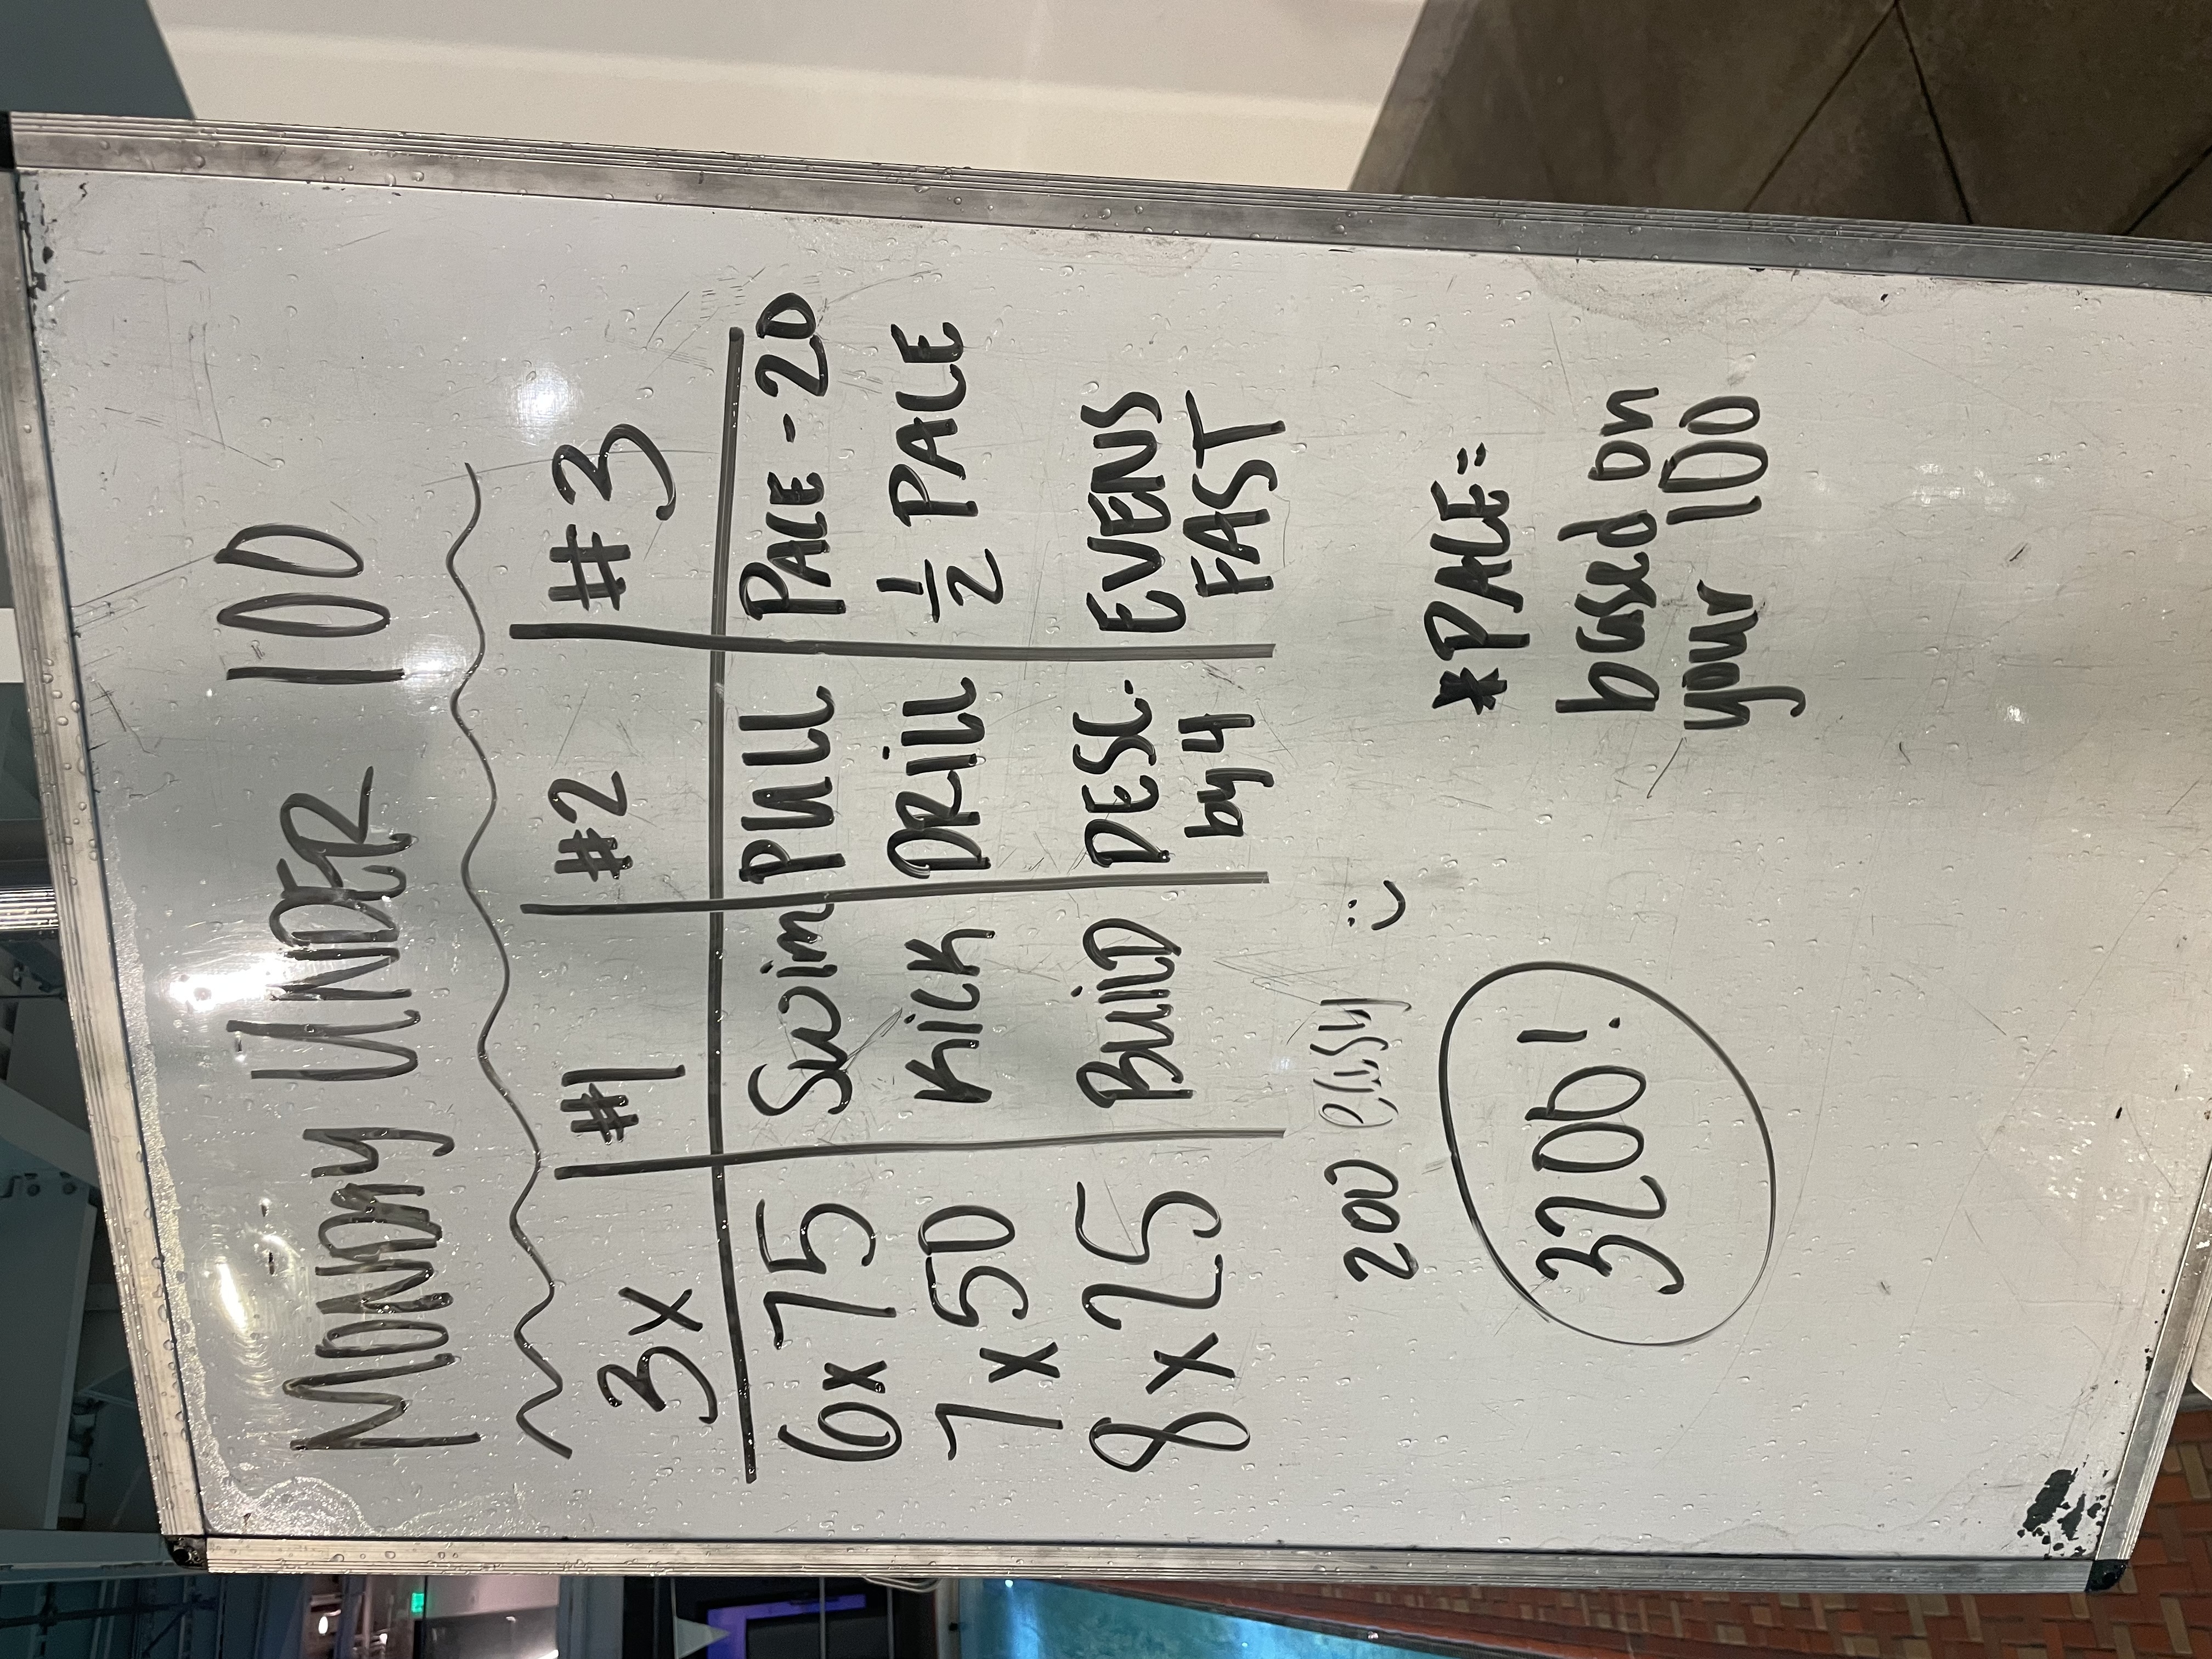 MONDAY UNDER 100
3x #1 #2 #3
6x 75 Swim PULL PACE - 20
7 x 50 KICK DRILL ½ PACE
8 x 25 BUILD DESC. by 4 EVENS FAST
200 easy :)
3200!
*PACE=
based on
your 100